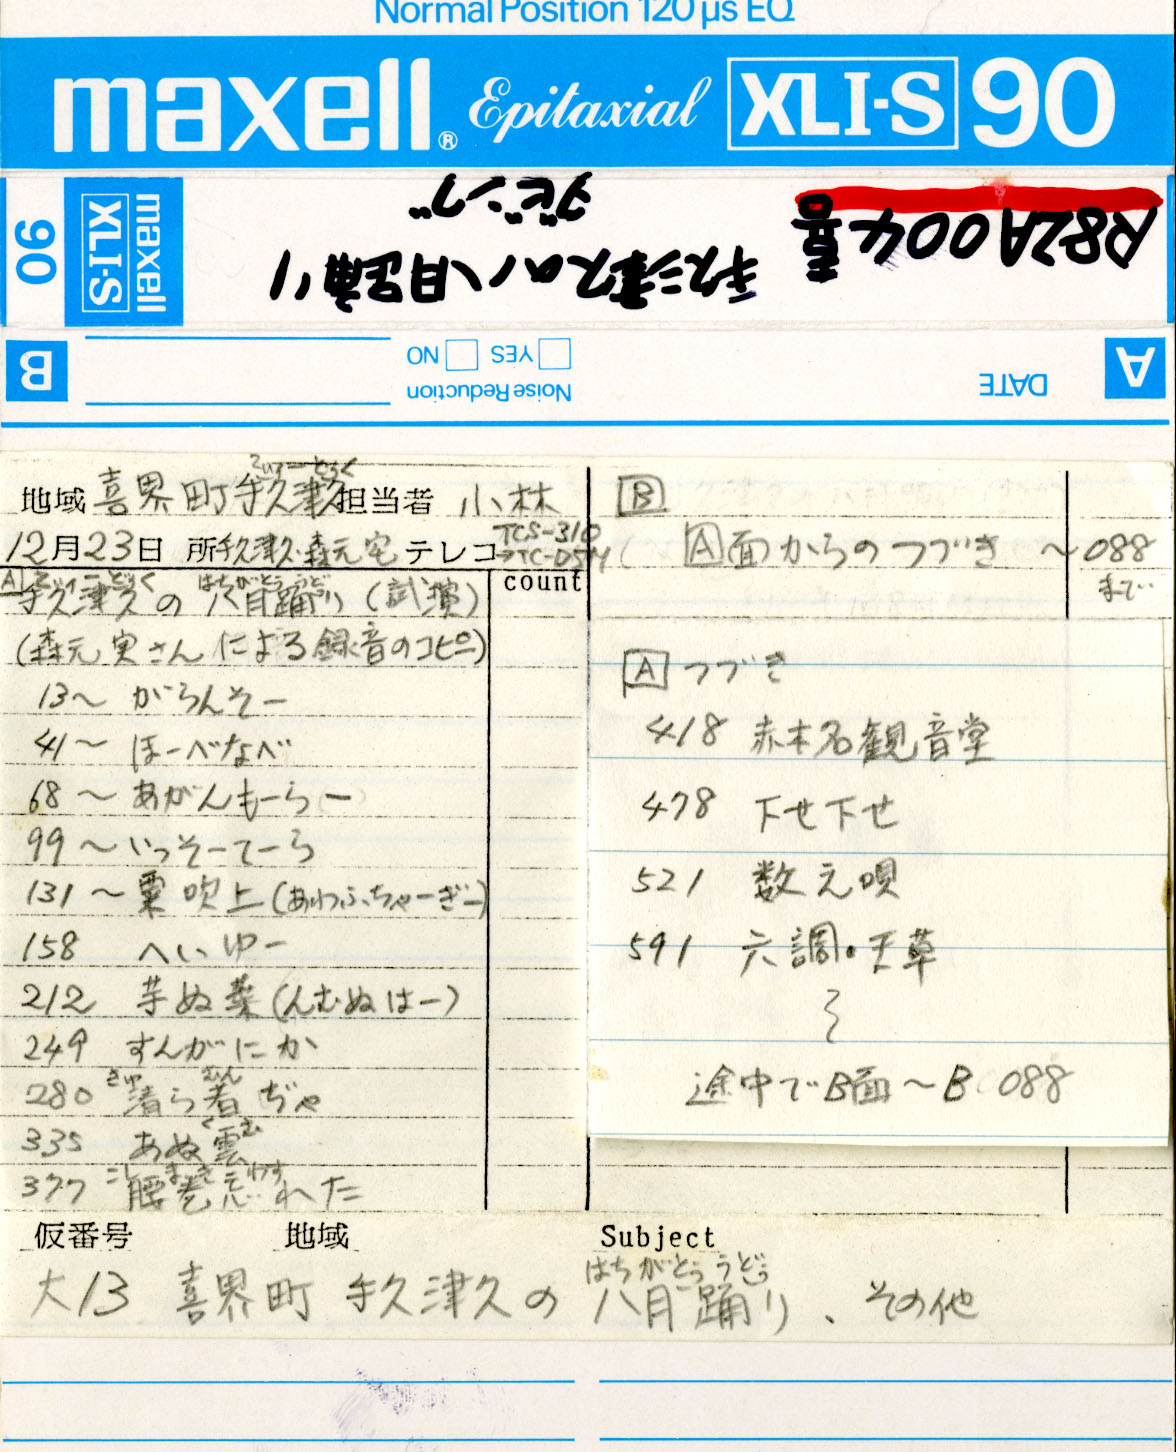 Normal Position 120 µs EQ
maxell® Epitaxial XLI-S 90
R82A004 喜
手久津久の八月踊り
ダビング
maxell XLI-S 90
A DATE
Noise Reduction
YES NO
B
地域 喜界町手久津久 担当者 小林
12月23日 所 手久津久・森元宅 テレコ TCS-310
count
A 手久津久の八月踊り(試演)
はちがとぅうどぅ
(森元実さんによる録音のコピー)
13〜 がらんそー
41〜 ほーべなべ
68〜 あがんもーらー
99〜 いっそーてーら
131〜 粟吹上(あわふちゃーぎー)
158 へいゆー
212 芋ぬ葉(んむぬはー)
249 すんがにか
きゅ むん
280 清ら着ぢゃ
くむ
335 あぬ雲
こしまき わす
377 腰巻忘れた
B
A面からのつづき 〜088
まで
A つづき
418 赤木名観音堂
478 下せ下せ
521 数え唄
591 六調・天草
〜
途中でB面〜B 088
仮番号 地域 Subject
はちがとぅうどぅ
大13 喜界町 手久津久の八月踊り、その他